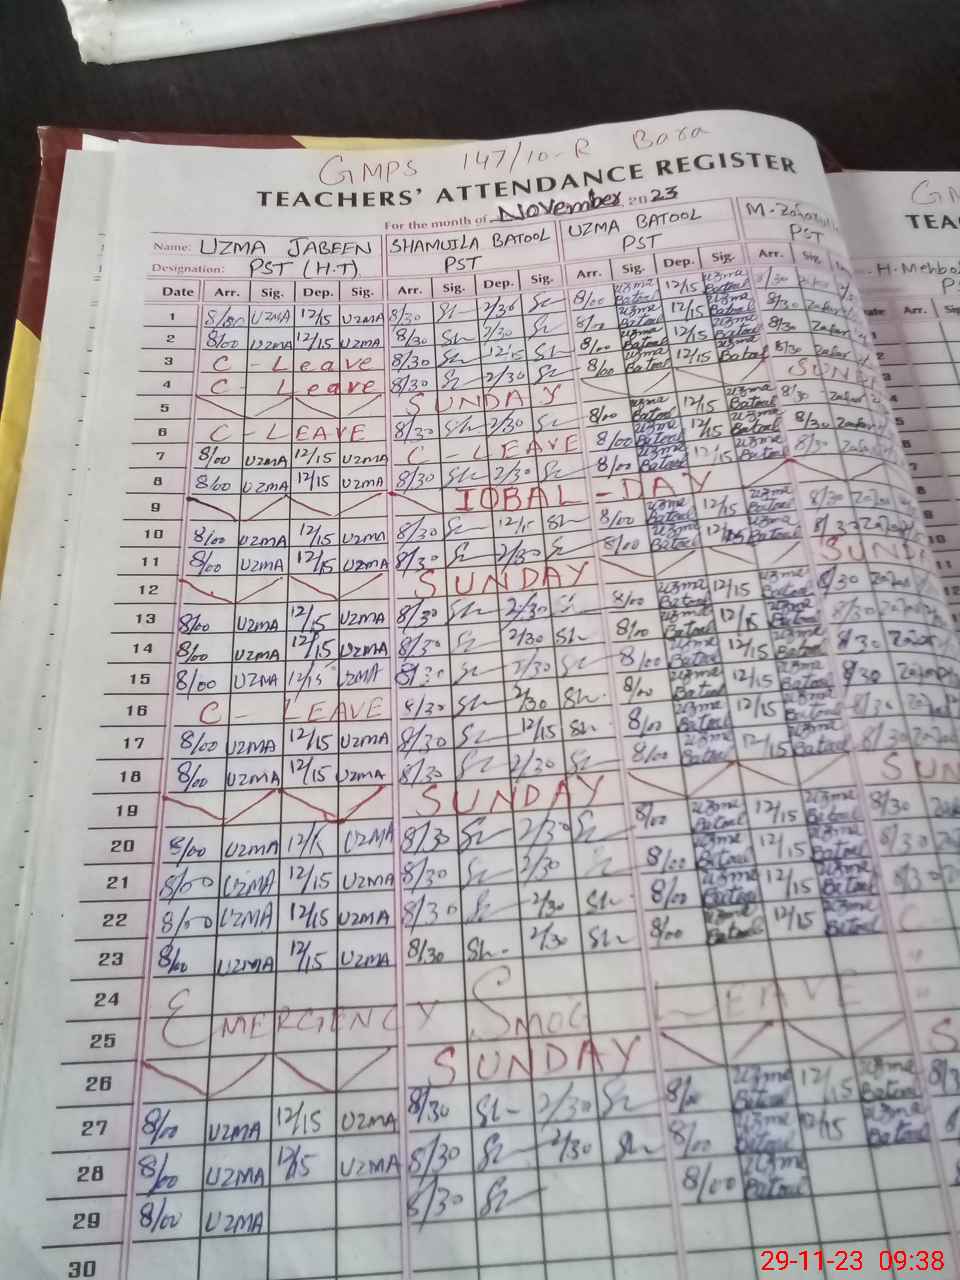 GMPS 147/10-R Bara
TEACHERS' ATTENDANCE REGISTER
For the month of November 2023
Name: UZMA JABEEN SHAMUILA BATOOL UZMA BATOOL
Designation: PST (H.T) PST PST PST
Date Arr. Sig. Dep. Sig. Arr. Sig. Dep. Sig. Arr. Sig. Dep. Sig. Arr. Sig.
1 8/00 UZMA 12/15 UZMA 8/30 2/30 8/00 Uzma Batool 12/15 Uzma Batool 8/30
2 8/00 UZMA 12/15 UZMA 8/30 2/30 8/00 Uzma Batool 12/15 Uzma Batool 8/30
3 C - Leave 8/30 12/15 8/00 Uzma Batool 12/15 Uzma Batool 8/30
4 C - Leave 8/30 2/30 8/00 Uzma Batool 12/15 Uzma Batool 8/30
5 SUNDAY
6 C - LEAVE 8/30 2/30 8/00 Uzma Batool 12/15 Uzma Batool 8/30
7 8/00 UZMA 12/15 UZMA C - LEAVE 8/00 Uzma Batool 12/15 Uzma Batool 8/30
8 8/00 UZMA 12/15 UZMA 8/30 2/30 8/00 Uzma Batool 12/15 Uzma Batool 8/30
9 IQBAL - DAY
10 8/00 UZMA 12/15 UZMA 8/30 12/15 8/00 Uzma Batool 12/15 Uzma Batool 8/30
11 8/00 UZMA 12/15 UZMA 8/30 2/30 8/00 Uzma Batool 12/15 Uzma Batool 8/30
12 SUNDAY
13 8/00 UZMA 12/15 UZMA 8/30 2/30 8/00 Uzma Batool 12/15 Uzma Batool 8/30
14 8/00 UZMA 12/15 UZMA 8/30 2/30 8/00 Uzma Batool 12/15 Uzma Batool 8/30
15 8/00 UZMA 12/15 UZMA 8/30 2/30 8/00 Uzma Batool 12/15 Uzma Batool 8/30
16 C - LEAVE 8/30 2/30 8/00 Uzma Batool 12/15 Uzma Batool 8/30
17 8/00 UZMA 12/15 UZMA 8/30 12/15 8/00 Uzma Batool 12/15 Uzma Batool 8/30
18 8/00 UZMA 12/15 UZMA 8/30 2/30 8/00 Uzma Batool 12/15 Uzma Batool 8/30
19 SUNDAY
20 8/00 UZMA 12/15 UZMA 8/30 2/30 8/00 Uzma Batool 12/15 Uzma Batool 8/30
21 8/00 UZMA 12/15 UZMA 8/30 2/30 8/00 Uzma Batool 12/15 Uzma Batool 8/30
22 8/00 UZMA 12/15 UZMA 8/30 2/30 8/00 Uzma Batool 12/15 Uzma Batool 8/30
23 8/00 UZMA 12/15 UZMA 8/30 2/30 8/00 Uzma Batool 12/15 Uzma Batool
24
25 EMERGENCY SMOG LEAVE
26 SUNDAY
27 8/00 UZMA 12/15 UZMA 8/30 2/30 8/00 Uzma Batool 12/15 Uzma Batool
28 8/00 UZMA 12/15 UZMA 8/30 2/30 8/00 Uzma Batool 12/15 Uzma Batool
29 8/00 UZMA 8/30 8/00 Uzma Batool
30
29-11-23 09:38